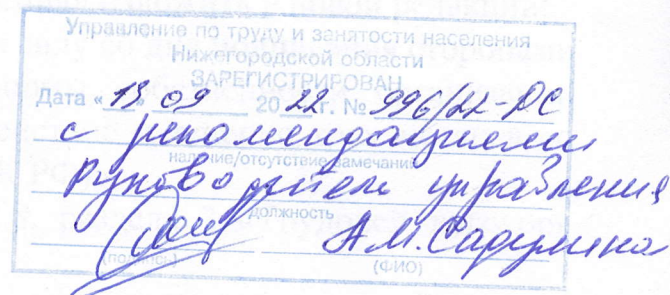 Управление по труду и занятости населения
Нижегородской области
ЗАРЕГИСТРИРОВАН
Дата «13» 09 2022 г. № 996/22-РС
с рекомендациями
наличие/отсутствие замечаний
руководитель управления
должность
А.М.
(подпись) (ФИО)